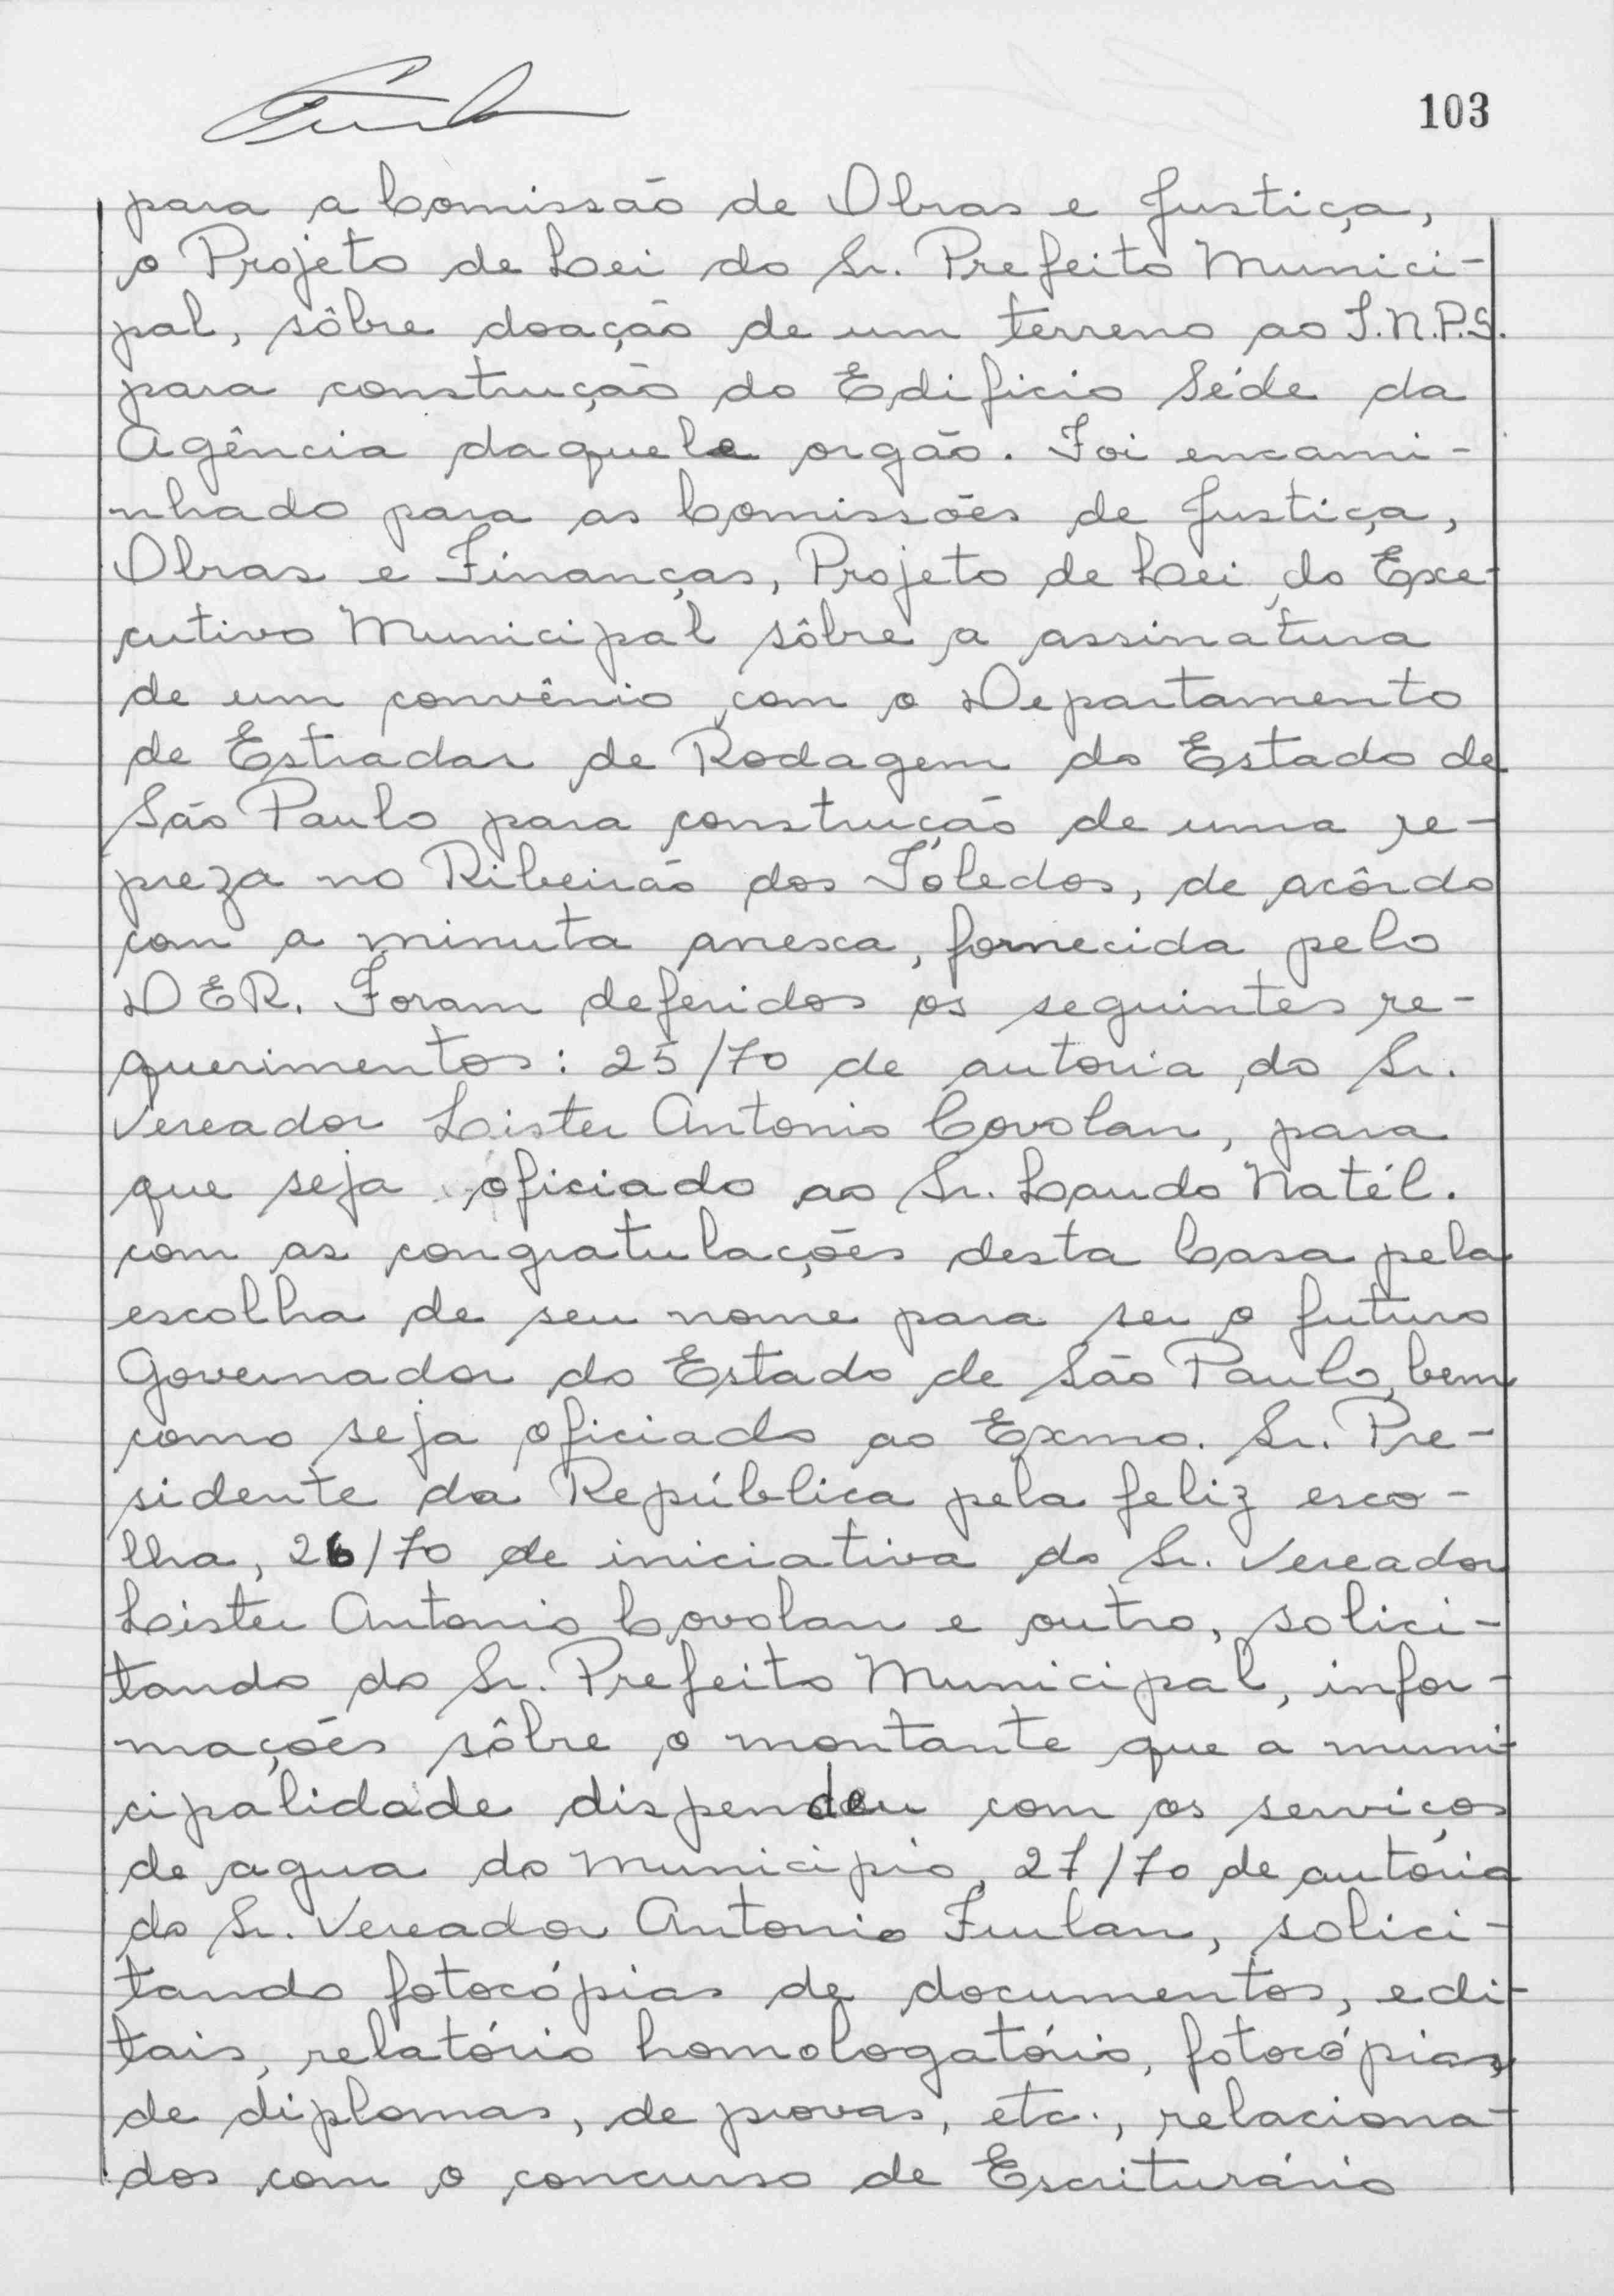 103
para a Comissão de Obras e Justiça,
o Projeto de Lei do Sr. Prefeito Munici-
pal, sôbre doação de um terreno ao I.N.P.S.
para construção do Edificio Séde da
Agência daquele orgão. Foi encami-
nhado para as Comissões de Justiça,
Obras e Finanças, Projeto de Lei do Exe-
cutivo Municipal sôbre a assinatura
de um convênio com o Departamento
de Estradas de Rodagem do Estado de
São Paulo para construção de uma re-
preza no Ribeirão dos Tóledos, de acôrdo
com a minuta anexa, fornecida pelo
DER. Foram deferidos os seguintes re-
querimentos: 25/70 de autoria do Sr.
Vereador Lister Antonio Covolan, para
que seja oficiado ao Sr. Laudo Natél.
com as congratulações desta Casa pela
escolha de seu nome para ser o futuro
Governador do Estado de São Paulo, bem
como seja oficiado ao Exmo. Sr. Pre-
sidente da República pela feliz esco-
lha, 26/70 de iniciativa do Sr. Vereador
Lister Antonio Covolan e outro, solici-
tando do Sr. Prefeito Municipal, infor-
mações sôbre o montante que a muni-
cipalidade dispendeu com os serviços
de agua do Municipio, 27/70 de autória
do Sr. Vereador Antonio Furlan, solici-
tando fotocópias de documentos, edi-
tais, relatório homologatório, fotocópias,
de diplomas, de provas, etc., relaciona-
dos com o concurso de Escriturário